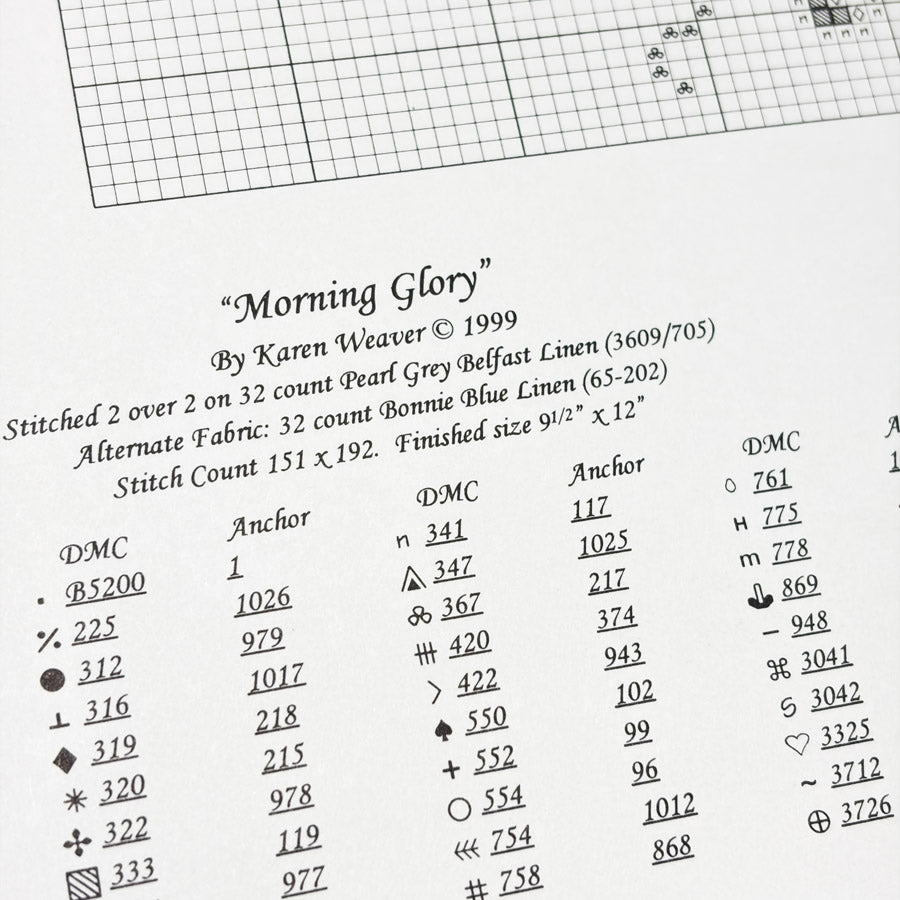 “Morning Glory”
By Karen Weaver © 1999
Stitched 2 over 2 on 32 count Pearl Grey Belfast Linen (3609/705)
Alternate Fabric: 32 count Bonnie Blue Linen (65-202)
Stitch Count 151 x 192. Finished size 9 1/2” x 12”
DMC Anchor DMC Anchor DMC
· B5200 1 n 341 117 761
٪ 225 1026 347 1025 H 775
● 312 979 367 217 m 778
⊥ 316 1017 420 374 869
◆ 319 218 > 422 943 – 948
✳ 320 215 ♠ 550 102 ⌘ 3041
322 978 + 552 99 S 3042
▧ 333 119 ○ 554 96 ♡ 3325
977 754 1012 ~ 3712
# 758 868 ⊕ 3726